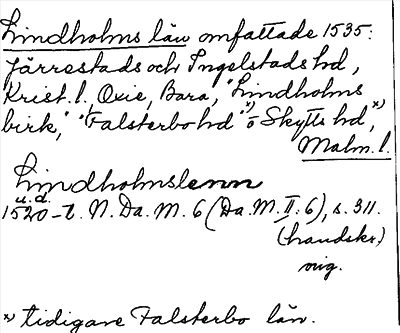 Lindholms län omfattade 1535:
Järrestads och Ingelstads hd,
Krist. l. Oxie, Bara, "Lindholms
birk," "Falsterbo hd" x) o Skytts hd, x)
Malm. l.
Lindholmslenn
u.d.
1520-t. N. Da. M. 6 (Da. M. II: 6), s. 311.
(handskr)
x) tidigare Falsterbo län.